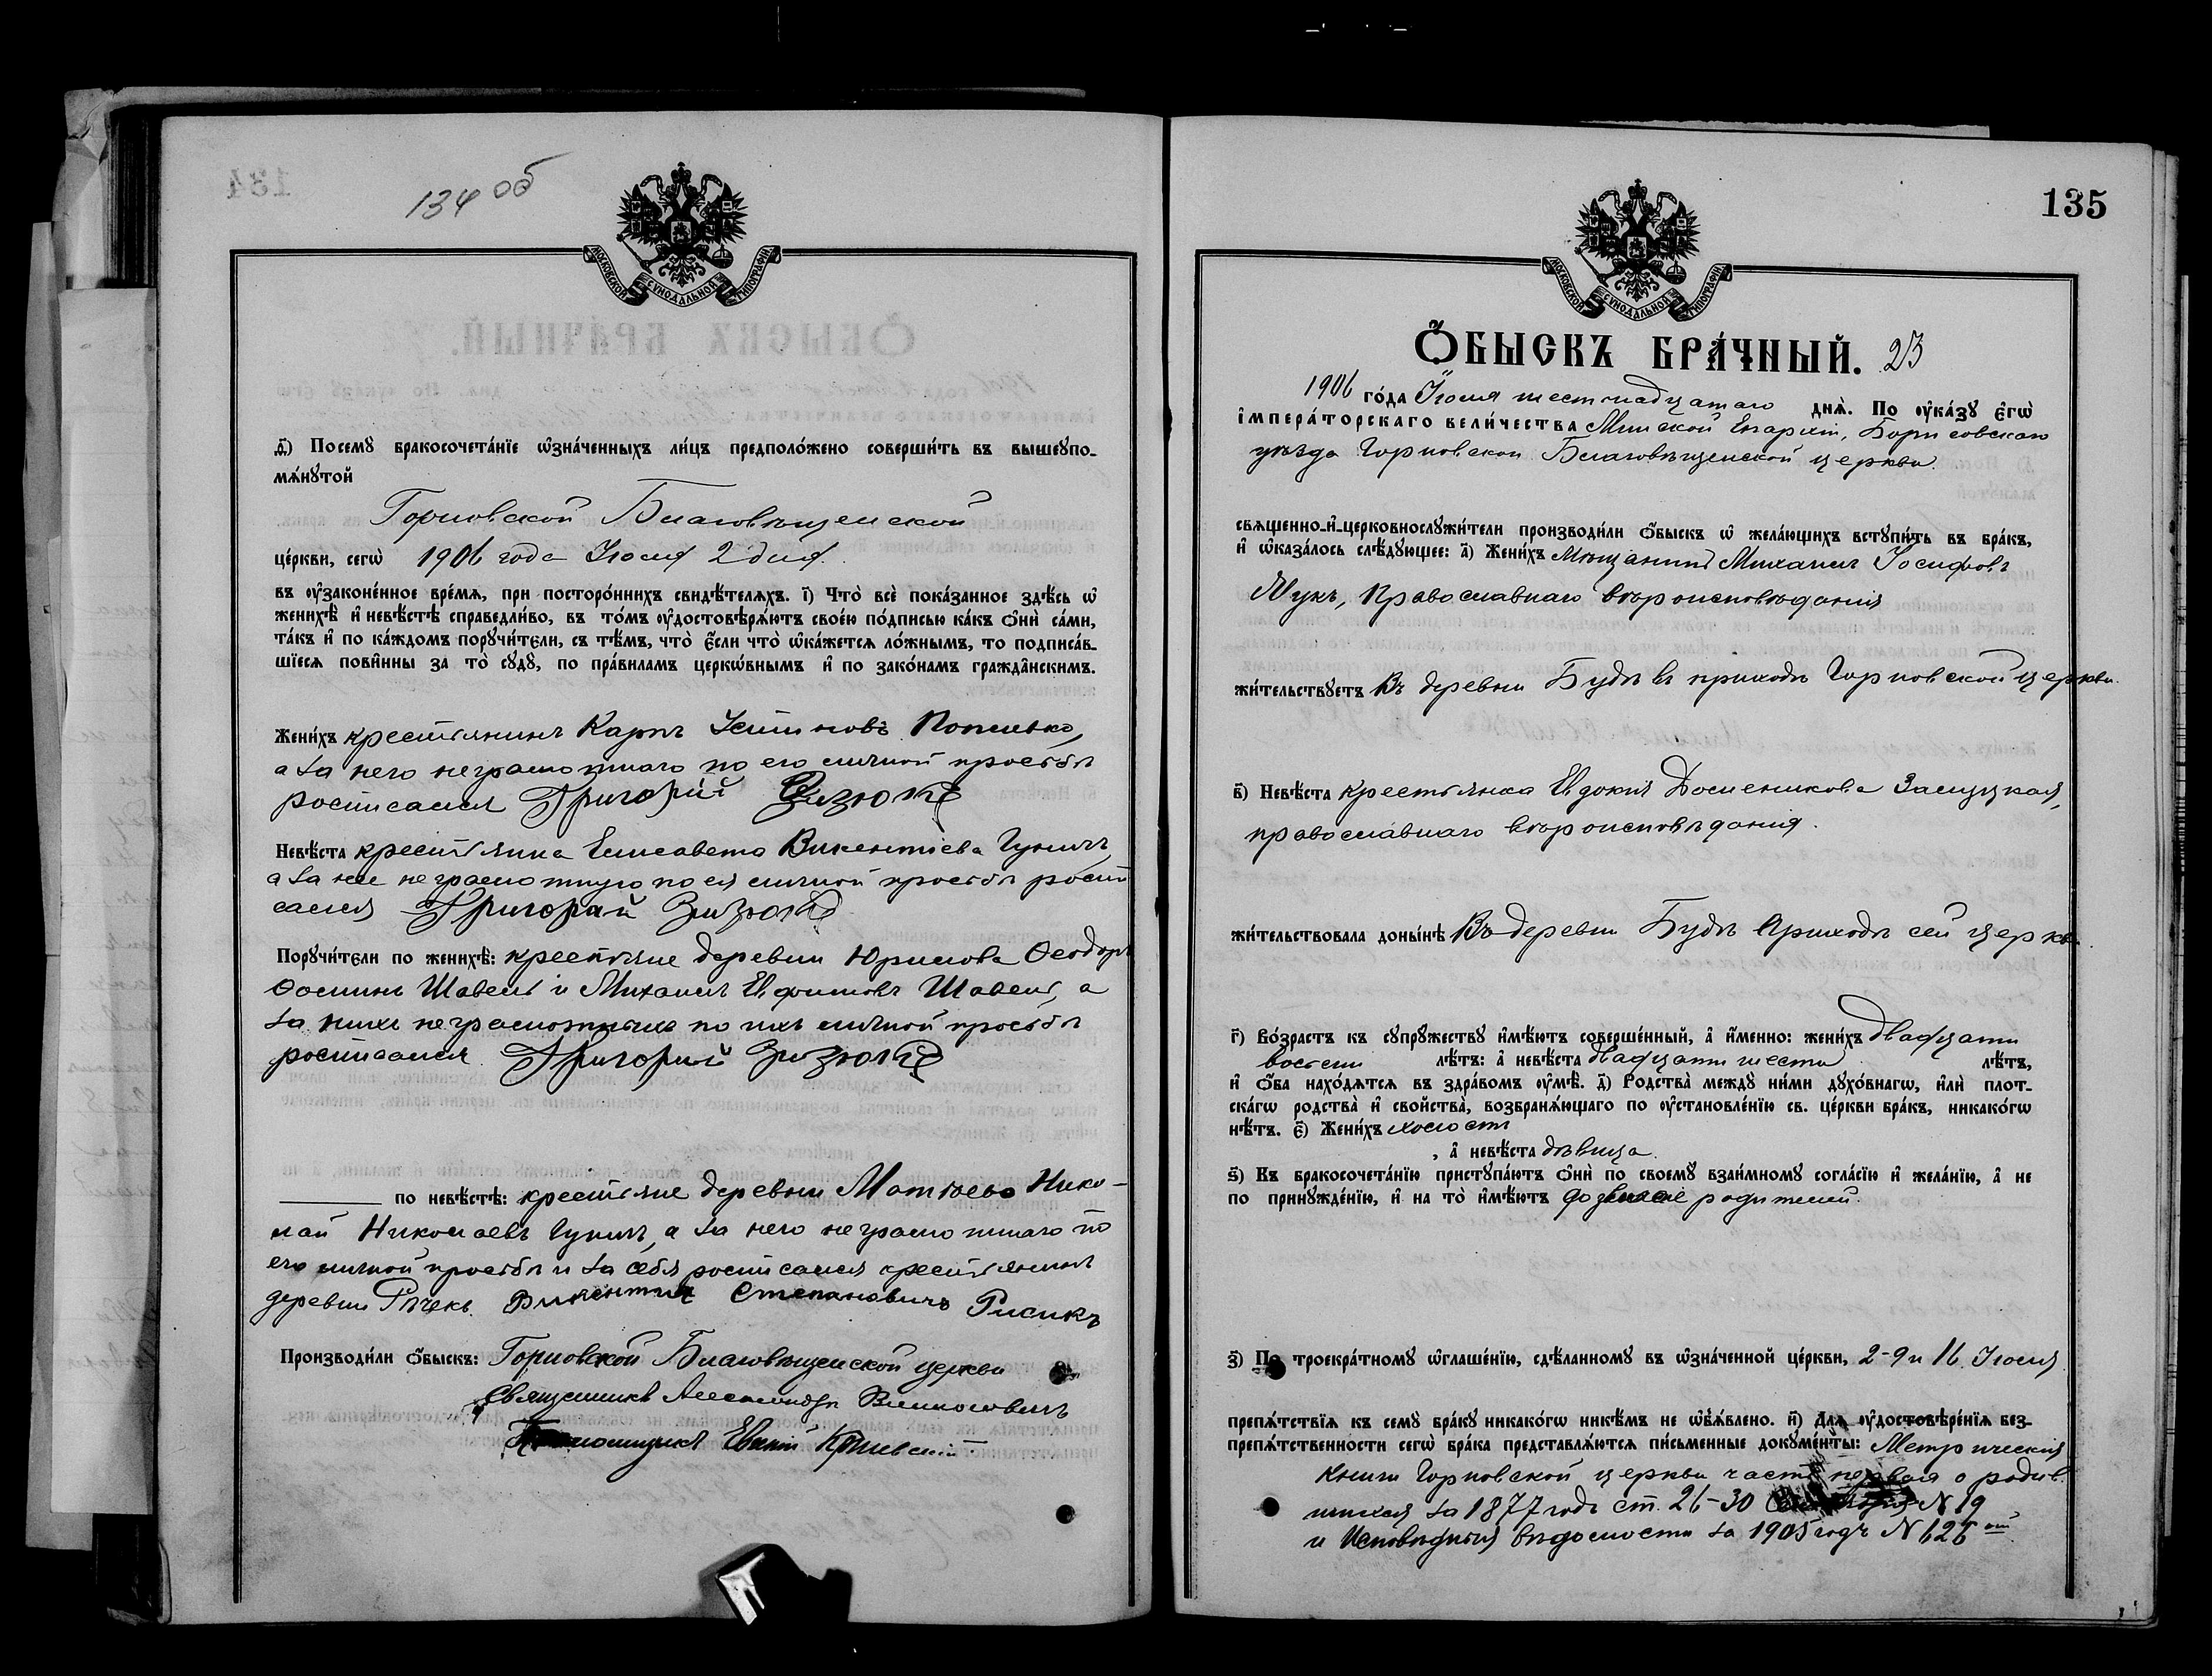 134 об
МОСКОВСКОЙ СѴНОДАЛЬНОЙ ТИПОГРАФІИ
д҃) Посемꙋ бракосочета́нїе ѡ҆зна́ченныхъ ли́цъ предполо́жено совершить въ вышеꙋпо-
мѧ́нꙋтой
Горновской Благовѣщенской
це́ркви, сегѡ̀ 1906 года Іюля 2 дня.
въ ᲂу҆законе́нное вре́мѧ, при посторо́ннихъ свидѣ́телѧхъ. і҃) Что̀ всѐ пока́занное здѣ́сь ѡ҆
женихѣ̀ и҆ невѣ́стѣ справедли́во, въ то́мъ ᲂу҆достовѣрѧ́ютъ свое́ю по́дписью ка́къ ѻ҆нѝ са́ми,
та́къ и҆ по ка́ждомъ порꙋчи́тели, съ тѣ́мъ, что̀ є҆́сли что̀ ѡ҆ка́жется ло́жнымъ, то подписа́в-
шїесѧ пови́нны за то̀ сꙋдꙋ̀, по пра́виламъ церкѡ́внымъ и҆ по зако́намъ гражда́нскимъ.
Жени́хъ крестьянинъ Карпъ Устиновъ
а за него неграмотнаго по его личной просьбѣ
росписался Григорій Зизюль
Невѣ́ста крестьянка Елисавета Викентіева Гуничъ,
а за нее неграмотную по ея личной просьбѣ роспи
сался Григорій Зизюль
Порꙋчи́тели по женихѣ̀: крестьяне деревни Юрилова Ѳеодоръ
Ѳоминъ Шавель и Михаилъ Евфимовъ Шавель, а
за нихъ неграмотныхъ по ихъ личной просьбѣ
росписался Григорій Зизюль
по невѣ́стѣ: крестьяне деревни Нико-
лай Николаевъ Гуничъ, а за него неграмотнаго по
его личной просьбѣ и за себя росписался крестьянинъ
деревни Рѣчекъ Викентий Степановичъ Рисикъ
Производи́ли ѻ҆́быскъ: Горновской Благовѣщенской церкви
Священникъ Александръ
Псаломщикъ
135
МОСКОВСКОЙ СѴНОДАЛЬНОЙ ТИПОГРАФІИ
Ѻ҆́БЫСКЪ БРА́ЧНЫЙ. 23
1906 го́да Іюля шестнадцатаго днѧ̀. По ᲂу҆ка́зꙋ є҆гѡ̀
і҆мпера́торскаго вели́чества Минской Епархіи, Борисовскаго
уѣзда Горновской Благовѣщенской церкви.
свѧщенно-и҆-церковнослꙋжи́тели производи́ли ѻ҆́быскъ ѡ҆ жела́ющихъ встꙋпи́ть въ бра́къ,
и҆ ѡ҆каза́лось слѣ́дꙋющее: а҃) Жени́хъ Мѣщанинъ Михаилъ Іосифовъ
Мукъ, Православнаго вѣроисповѣданія
жи́тельствꙋетъ Въ деревни Будѣ въ приходѣ Горновской церкви.
в҃) Невѣ́ста крестьянка Евдокія
православнаго вѣроисповѣданія.
жи́тельствовала доны́нѣ Въ деревни Будѣ Приходѣ сей церкви
г҃) Во́зрастъ къ сꙋпрꙋ́жествꙋ и҆мѣ́ютъ соверше́нный, а҆ и҆́менно: жени́хъ двадцати
восьми лѣ́тъ: а҆ невѣ́ста двадцати шести лѣ́тъ,
и҆ ѻ҆́ба нахо́дѧтсѧ въ здра́вомъ ᲂу҆мѣ̀. д҃) Родства̀ междꙋ̀ ни́ми дꙋхо́внагѡ, и҆лѝ плот-
ска́гѡ родства̀ и҆ свойства̀, возбранѧ́ющаго по ᲂу҆становле́нїю св. це́ркви бра́къ, никако́гѡ
нѣ́тъ. є҃) Жени́хъ холостъ
, а҆ невѣ́ста дѣвица.
ѕ҃) Къ бракосочета́нїю пристꙋпа́ютъ ѻ҆нѝ по своемꙋ̀ взаи́мномꙋ согла́сїю и҆ жела́нїю, а҆ не
по принꙋжде́нїю, и҆ на то̀ и҆мѣ́ютъ родителей.
з҃) По троекра́тномꙋ ѡ҆глаше́нїю, сдѣ́ланномꙋ въ ѡ҆зна́ченной це́ркви, 2-9 и 16 Іюля
препѧ́тствїѧ къ семꙋ̀ бра́кꙋ никако́гѡ никѣ́мъ не ѡ҆б̾ѧ́влено. и҃) Длѧ ᲂу҆достовѣре́нїѧ без-
препѧ́тственности сегѡ̀ бра́ка представлѧ́ютсѧ пи́сьменные докꙋме́нты: Метрическія
книги Горновской церкви часть первая о родив
шихся за 1877 годъ ст. 26-30 N 19
и Исповѣдныя вѣдомости за 1905 годъ N 126